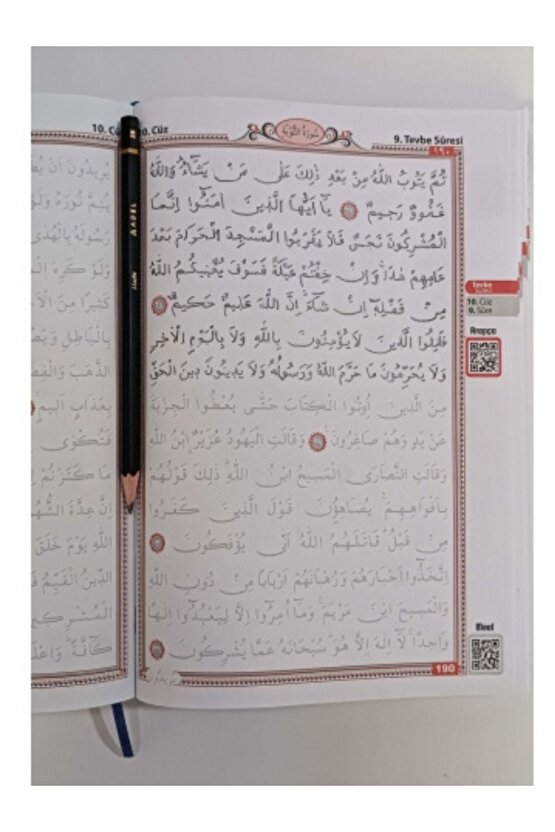 10. Cüz
9. Tevbe Sûresi
سُورَةُ التَّوْبَةِ
١٩٠
ثُمَّ يَتُوبُ اللّٰهُ مِنْ بَعْدِ ذٰلِكَ عَلٰى مَنْ يَشَٓاءُۜ وَاللّٰهُ
غَفُورٌ رَح۪يمٌ يَٓا اَيُّهَا الَّذ۪ينَ اٰمَنُٓوا اِنَّمَا
الْمُشْرِكُونَ نَجَسٌ فَلَا يَقْرَبُوا الْمَسْجِدَ الْحَرَامَ بَعْدَ
عَامِهِمْ هٰذَاۚ وَاِنْ خِفْتُمْ عَيْلَةً فَسَوْفَ يُغْن۪يكُمُ اللّٰهُ
مِنْ فَضْلِه۪ٓ اِنْ شَٓاءَۜ اِنَّ اللّٰهَ عَل۪يمٌ حَك۪يمٌ
قَاتِلُوا الَّذ۪ينَ لَا يُؤْمِنُونَ بِاللّٰهِ وَلَا بِالْيَوْمِ الْاٰخِرِ
وَلَا يُحَرِّمُونَ مَا حَرَّمَ اللّٰهُ وَرَسُولُهُ وَلَا يَد۪ينُونَ د۪ينَ الْحَقِّ
مِنَ الَّذ۪ينَ اُوتُوا الْكِتَابَ حَتّٰى يُعْطُوا الْجِزْيَةَ
عَنْ يَدٍ وَهُمْ صَاغِرُونَ۟ وَقَالَتِ الْيَهُودُ عُزَيْرٌۨ ابْنُ اللّٰهِ
وَقَالَتِ النَّصَارَى الْمَس۪يحُ ابْنُ اللّٰهِۜ ذٰلِكَ قَوْلُهُمْ
بِاَفْوَاهِهِمْۚ يُضَاهِؤُ۫نَ قَوْلَ الَّذ۪ينَ كَفَرُوا
مِنْ قَبْلُۜ قَاتَلَهُمُ اللّٰهُۘ اَنّٰى يُؤْفَكُونَ
اِتَّخَذُٓوا اَحْبَارَهُمْ وَرُهْبَانَهُمْ اَرْبَابًا مِنْ دُونِ اللّٰهِ
وَالْمَس۪يحَ ابْنَ مَرْيَمَۚ وَمَٓا اُمِرُٓوا اِلَّا لِيَعْبُدُٓوا اِلٰهًا
وَاحِدًاۚ لَٓا اِلٰهَ اِلَّا هُوَۜ سُبْحَانَهُ عَمَّا يُشْرِكُونَ
يُر۪يدُونَ
190
Tevbe
10. Cüz
9. Sûre
Arapça
Meal
10. Cüz
يُر۪يدُونَ اَنْ
يُتِمَّ نُورَهُ وَلَوْ
رَسُولَهُ بِالْهُدٰى
وَلَوْ كَرِهَ
كَث۪يرًا مِنَ
بِالْبَاطِلِ
الذَّهَبَ
بِعَذَابٍ اَل۪يمٍ
فَتُكْوٰى
مَا كَنَزْتُمْ
اِنَّ عِدَّةَ
اللّٰهِ يَوْمَ خَلَقَ
الدّ۪ينُ الْقَيِّمُ
الْمُشْرِك۪ينَ
كَٓافَّةًۜ